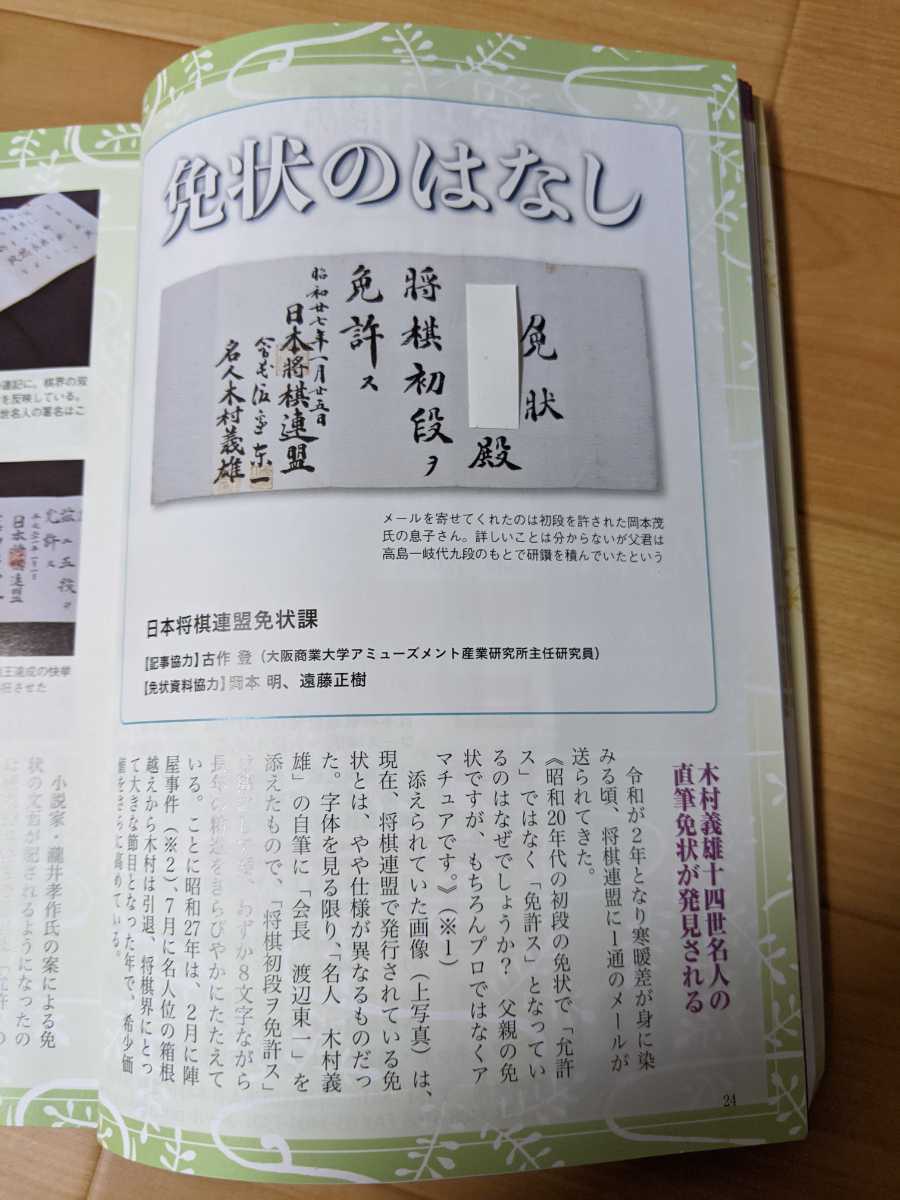 免状のはなし
免状
殿
將棋初段ヲ
免許ス
昭和廿七年一月廿五日
日本將棋連盟
会長渡辺東一
名人木村義雄
メールを寄せてくれたのは初段を許された岡本茂
氏の息子さん。詳しいことは分からないが父君は
高島一岐代九段のもとで研鑽を積んでいたという
日本将棋連盟免状課
【記事協力】古作 登（大阪商業大学アミューズメント産業研究所主任研究員）
【免状資料協力】岡本 明、遠藤正樹
木村義雄十四世名人の
直筆免状が発見される
令和が２年となり寒暖差が身に染
みる頃、将棋連盟に１通のメールが
送られてきた。
《昭和20年代の初段の免状で「允許
ス」ではなく「免許ス」となってい
るのはなぜでしょうか？ 父親の免
状ですが、もちろんプロではなくア
マチュアです。》（※１）
添えられていた画像（上写真）は、
現在、将棋連盟で発行されている免
状とは、やや仕様が異なるものだっ
た。字体を見る限り、「名人 木村義
雄」の自筆に「会長 渡辺東一」を
添えたもので、「将棋初段ヲ免許ス」
わずか８文字ながら
長年の精進をきらびやかにたたえて
いる。ことに昭和27年は、２月に陣
屋事件（※２）、７月に名人位の箱根
越えから木村は引退、将棋界にとっ
て大きな節目となった年で、希少価
値をさらに高めている。
小説家・瀧井孝作氏の案による免
状の文面が記されるようになったの
24
連記に。棋界の双
を反映している。
世名人の署名はこ
五段ヲ
允許ス
日本将棋連盟
王達成の快挙